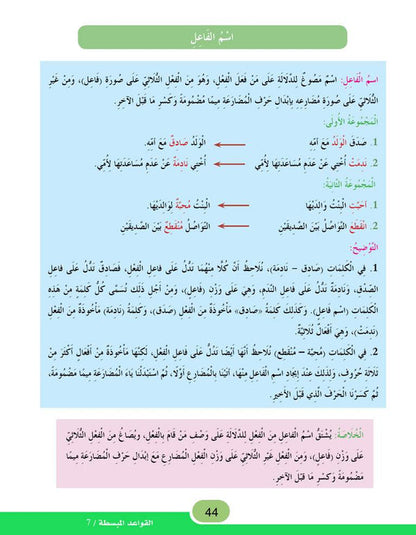 اسْمُ الفَاعِلِ
اسمُ الفَاعِلِ: اسْمٌ مَصُوغٌ لِلدَّلَالَةِ عَلَى مَنْ فَعَلَ الْفِعْلَ، وَهُوَ مِنَ الْفِعْلِ الثُّلَاثِيِّ عَلَى صُورَةِ (فَاعِلٍ)، وَمِنْ غَيْرِ
الثُّلَاثِيِّ عَلَى صُورَةِ مُضَارِعِهِ بِإِبْدَالِ حَرْفِ الْمُضَارَعَةِ مِيمًا مَضْمُومَةً وَكَسْرِ مَا قَبْلَ الآخِرِ.
الْمَجْمُوعَةُ الأُولَى:
1. صَدَقَ الْوَلَدُ مَعَ أُمِّهِ الْوَلَدُ صَادِقٌ مَعَ أُمِّهِ.
2. نَدِمَتْ أُخْتِي عَنْ عَدَمِ مُسَاعَدَتِهَا لِأُمِّي أُخْتِي نَادِمَةٌ عَنْ عَدَمِ مُسَاعَدَتِهَا لِأُمِّي.
الْمَجْمُوعَةُ الثَّانِيَةُ:
1. أَحَبَّتِ الْبِنْتُ وَالدَيْهَا الْبِنْتُ مُحِبَّةٌ لِوَالدَيْهَا.
2. انْقَطَعَ التَّوَاصُلُ بَيْنَ الصَّدِيقَيْنِ التَّوَاصُلُ مُنْقَطِعٌ بَيْنَ الصَّدِيقَيْنِ
التَّوْضِيحُ:
1. فِي الْكَلِمَاتِ (صَادِق – نَادِمَة)، نُلَاحِظُ أَنَّ كُلًّا مِنْهُمَا تَدُلُّ عَلَى فَاعِلِ الْفِعْلِ، فَصَادِقٌ تَدُلُّ عَلَى فَاعِلِ
الصِّدْقِ، وَنَادِمَةٌ تَدُلُّ عَلَى فَاعِلِ النَّدَمِ، وَهِيَ عَلَى وَزْنِ (فَاعِلٍ)، وَمِنْ أَجْلِ ذَلِكَ تُسَمَّى كُلُّ كَلِمَةٍ مِنْ هَذِهِ
الْكَلِمَاتِ (اسْمَ فَاعِلٍ). وَكَذَلِكَ كَلِمَةُ «صَادِق» مَأْخُوذَةٌ مِنَ الْفِعْلِ (صَدَقَ)، وَكَلِمَةُ (نَادِمَة) مَأْخُوذَةٌ مِنَ الْفِعْلِ
(نَدِمَتْ)، وَهِيَ أَفْعَالٌ ثُلَاثِيَّةٌ.
2. فِي الْكَلِمَاتِ (مُحِبَّة – مُنْقَطِع) نُلَاحِظُ أَنَّهَا أَيْضًا تَدُلُّ عَلَى فَاعِلِ الْفِعْلِ، لَكِنَّهَا مَأْخُوذَةٌ مِنْ أَفْعَالٍ أَكْثَرَ مِنْ
ثَلَاثَةِ حُرُوفٍ، وَلِذَلِكَ عِنْدَ إِيجَادِ اسْمِ الْفَاعِلِ مِنْهَا، أَتَيْنَا بِالْمُضَارِعِ أَوَّلًا، ثُمَّ اسْتَبْدَلْنَا يَاءَ الْمُضَارَعَةِ مِيمًا مَضْمُومَةً،
ثُمَّ كَسَرْنَا الْحَرْفَ الَّذِي قَبْلَ الأَخِيرِ.
الْخُلَاصَةُ: يُشْتَقُّ اسْمُ الْفَاعِلِ مِنَ الْفِعْلِ لِلدَّلَالَةِ عَلَى وَصْفِ مَنْ قَامَ بِالْفِعْلِ، ويُصَاغُ مِنَ الْفِعْلِ الثُّلَاثِيِّ
عَلَى وَزْنِ (فَاعِلٍ)، وَمِنَ الْفِعْلِ غَيْرِ الثُّلَاثِيِّ عَلَى وَزْنِ الْفِعْلِ الْمُضَارِعِ مَعَ إِبْدَالِ حَرْفِ الْمُضَارَعَةِ مِيمًا
مَضْمُومَةً وَكَسْرِ مَا قَبْلَ الآخِرِ.
44
القواعد المبسطة / 7